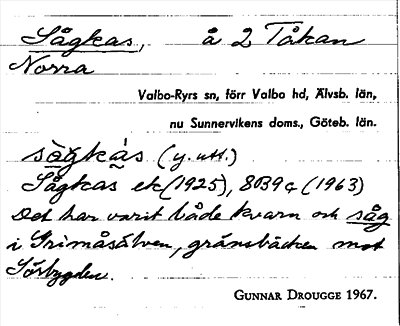 Sågkas, å 2 Tåkan
Norra
Valbo-Ryrs sn, förr Valbo hd, Älvsb. län,
nu Sunnervikens doms., Göteb. län.
sågkàs (y. utt.)
Sågkas ek (1925), 8B9c (1963)
Det har varit både kvarn och såg
i Grimåsälven, gränsbäcken mot
Sörbygden.
GUNNAR DROUGGE 1967.